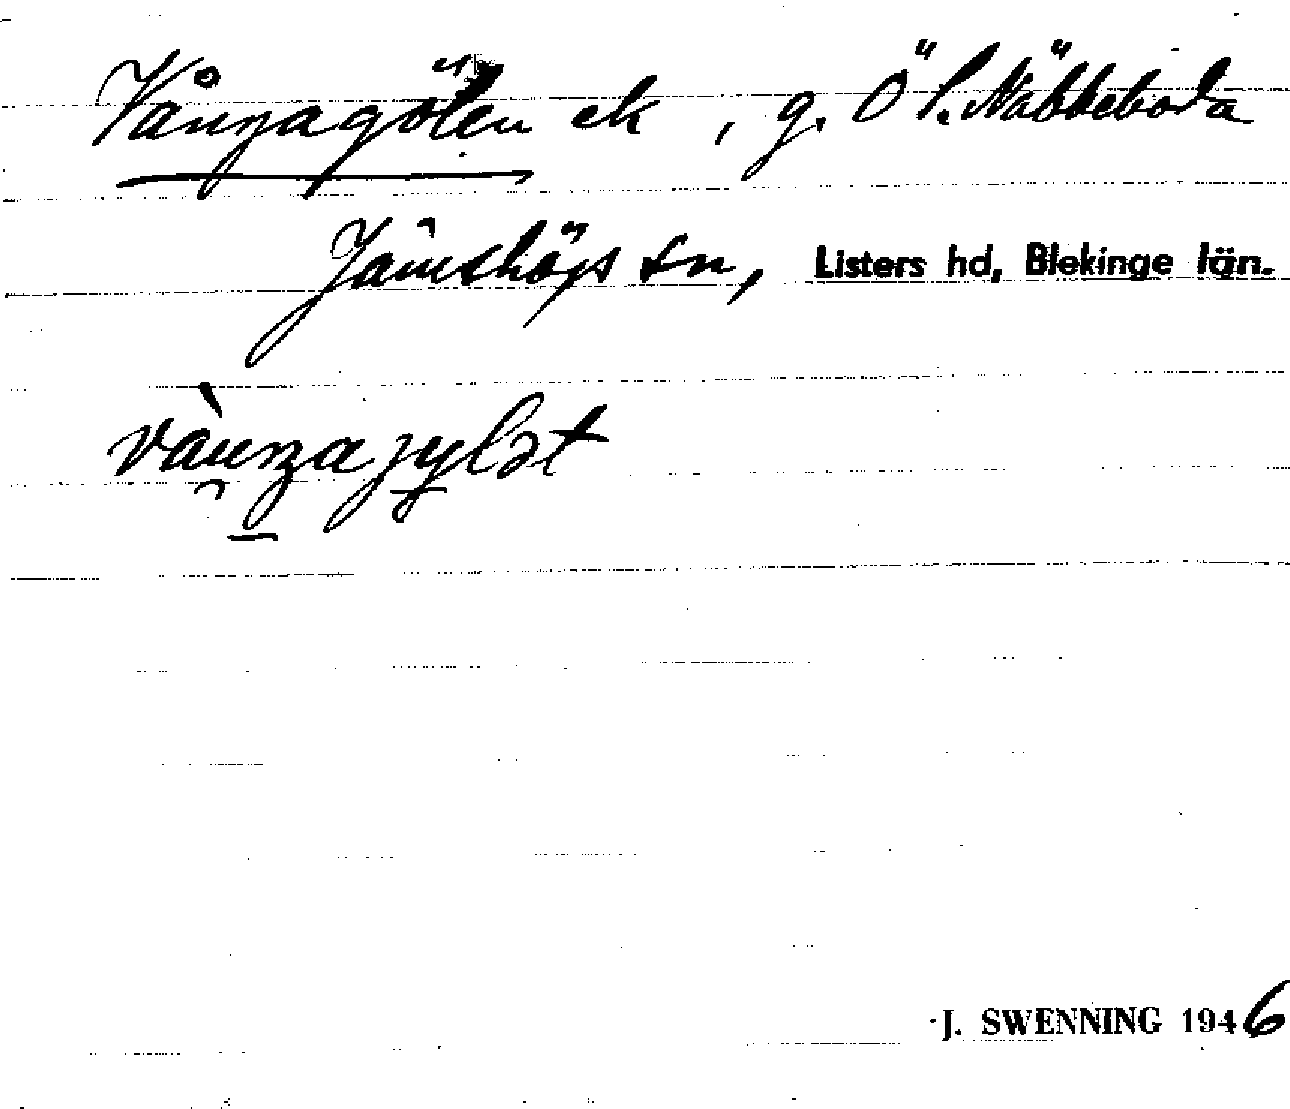 Vångagölen ek , g. Ö l. Näbbeboda
Jämshögs sn, Listers hd, Blekinge län.
J. SWENNING 1946